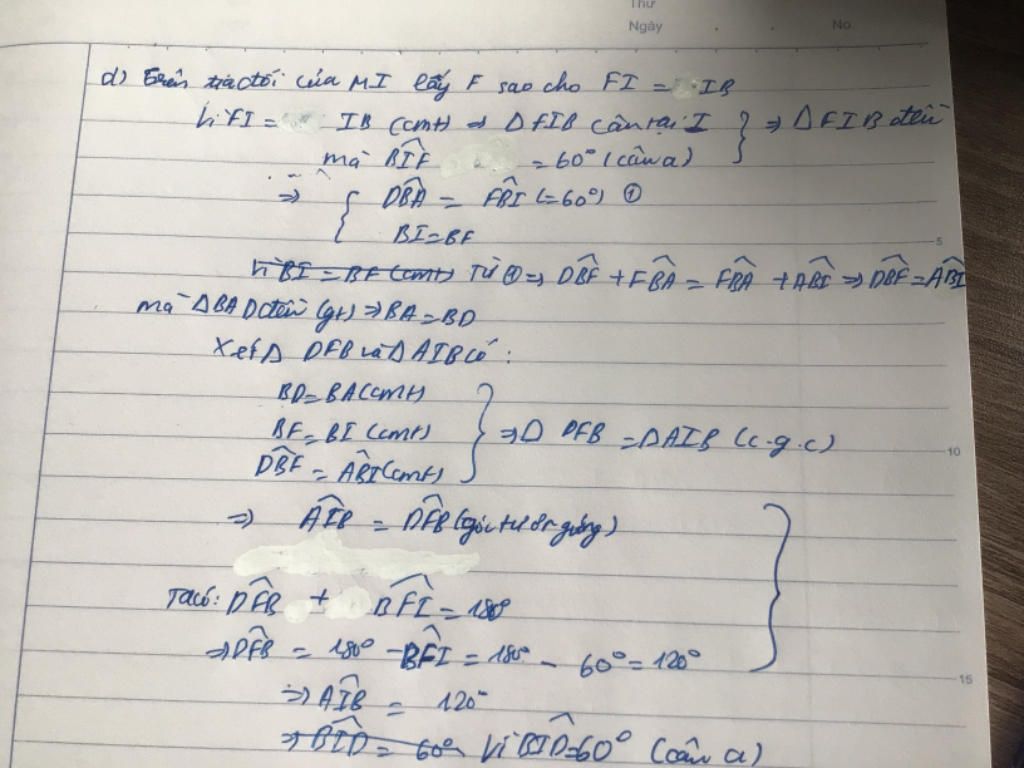 Thứ
Ngày No.
d) Trên tia đối của MI lấy F sao cho FI = IB
Vì FI = IB (cmt) ⇒ Δ FIB cân tại I } ⇒ Δ FIB đều
mà BÎF = 60° (câu a)
⇒ { DB̂A = FB̂I (=60°) ①
BI = BF
Vì BI = BF (cmt) Từ ① ⇒ DB̂F + FB̂A = FB̂A + AB̂I ⇒ DB̂F = AB̂I
5
mà ΔBAD đều (gt) ⇒ BA = BD
Xét Δ DFB và Δ AIB có:
BD = BA (cmt)
BF = BI (cmt) } ⇒ Δ DFB = Δ AIB (c.g.c)
10
DB̂F = AB̂I (cmt)
⇒ AÎB = DF̂B (góc tương ứng)
Ta có: DF̂B + BF̂I = 180°
⇒ DF̂B = 180° - BF̂I = 180° - 60° = 120°
15
⇒ AÎB = 120°
⇒ BÎD = 60° Vì BÎD = 60° (câu a)